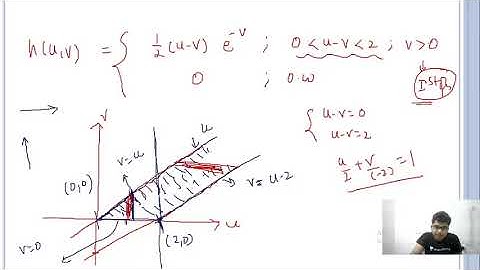 h(u,v) = { 1/2 (u-v) e^-v ; 0<u-v<2 ; v>0
0 ; 0.w
I Stp
{ u-v=0
u-v=2
u/I + v/(-2) = 1
v
u
v=u
(0,0)
v= u-2
u
v=0
(2,0)